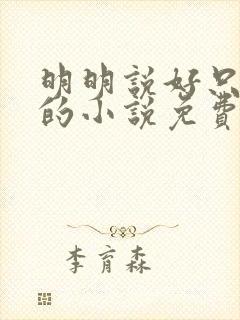 明明說好只
的小說免費
李育森